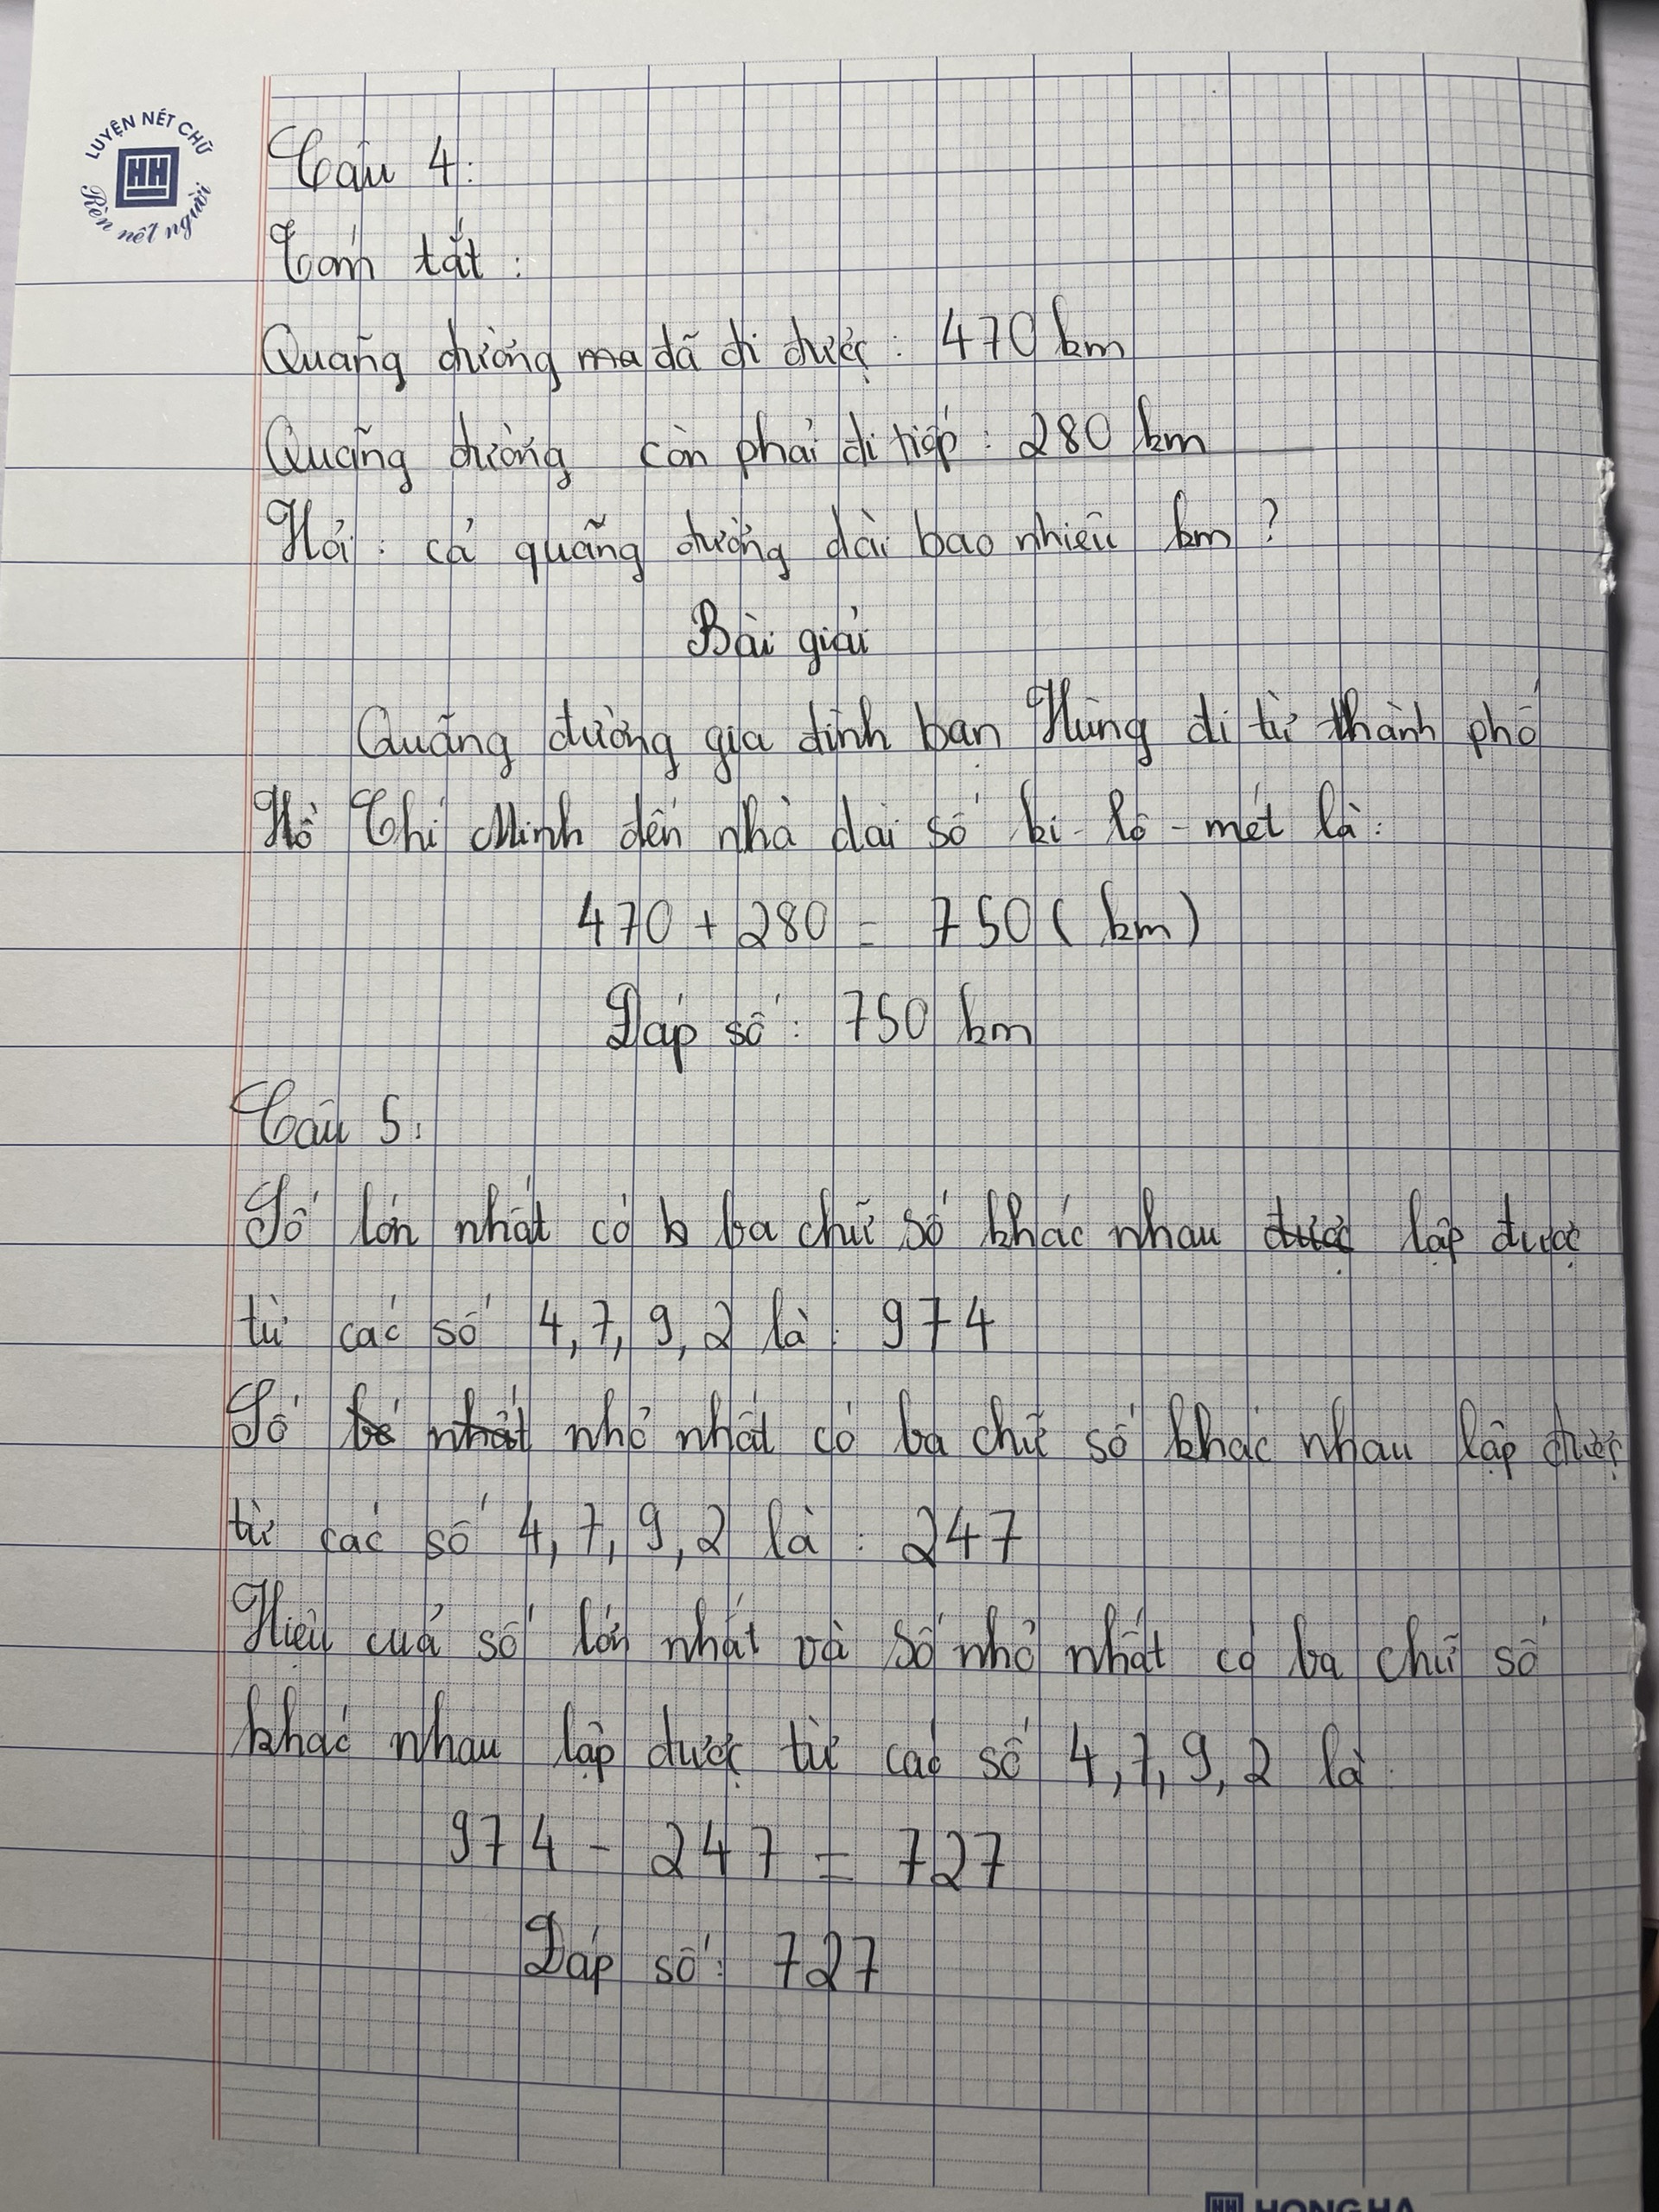 LUYỆN NÉT CHỮ
HH
Rèn nết người
Câu 4:
Tóm tắt :
Quãng đường ma đã đi được : 470 km
Quãng đường còn phải đi tiếp : 280 km
Hỏi : cả quãng đường dài bao nhiêu km ?
Bài giải
Quãng đường gia đình bạn Hùng đi từ thành phố
Hồ Chí Minh đến nhà dài số ki-lô-mét là:
470 + 280 = 750 ( km )
Đáp số : 750 km
Câu 5:
Số lớn nhất có b ba chữ số khác nhau được lập được
từ các số 4, 7, 9, 2 là : 974
Số bé nhất nhỏ nhất có ba chữ số khác nhau lập được
từ các số 4, 7, 9, 2 là : 247
Hiệu của số lớn nhất và số nhỏ nhất có ba chữ số
khác nhau lập được từ các số 4, 7, 9, 2 là:
974 - 247 = 727
Đáp số : 727
HH HONG HA